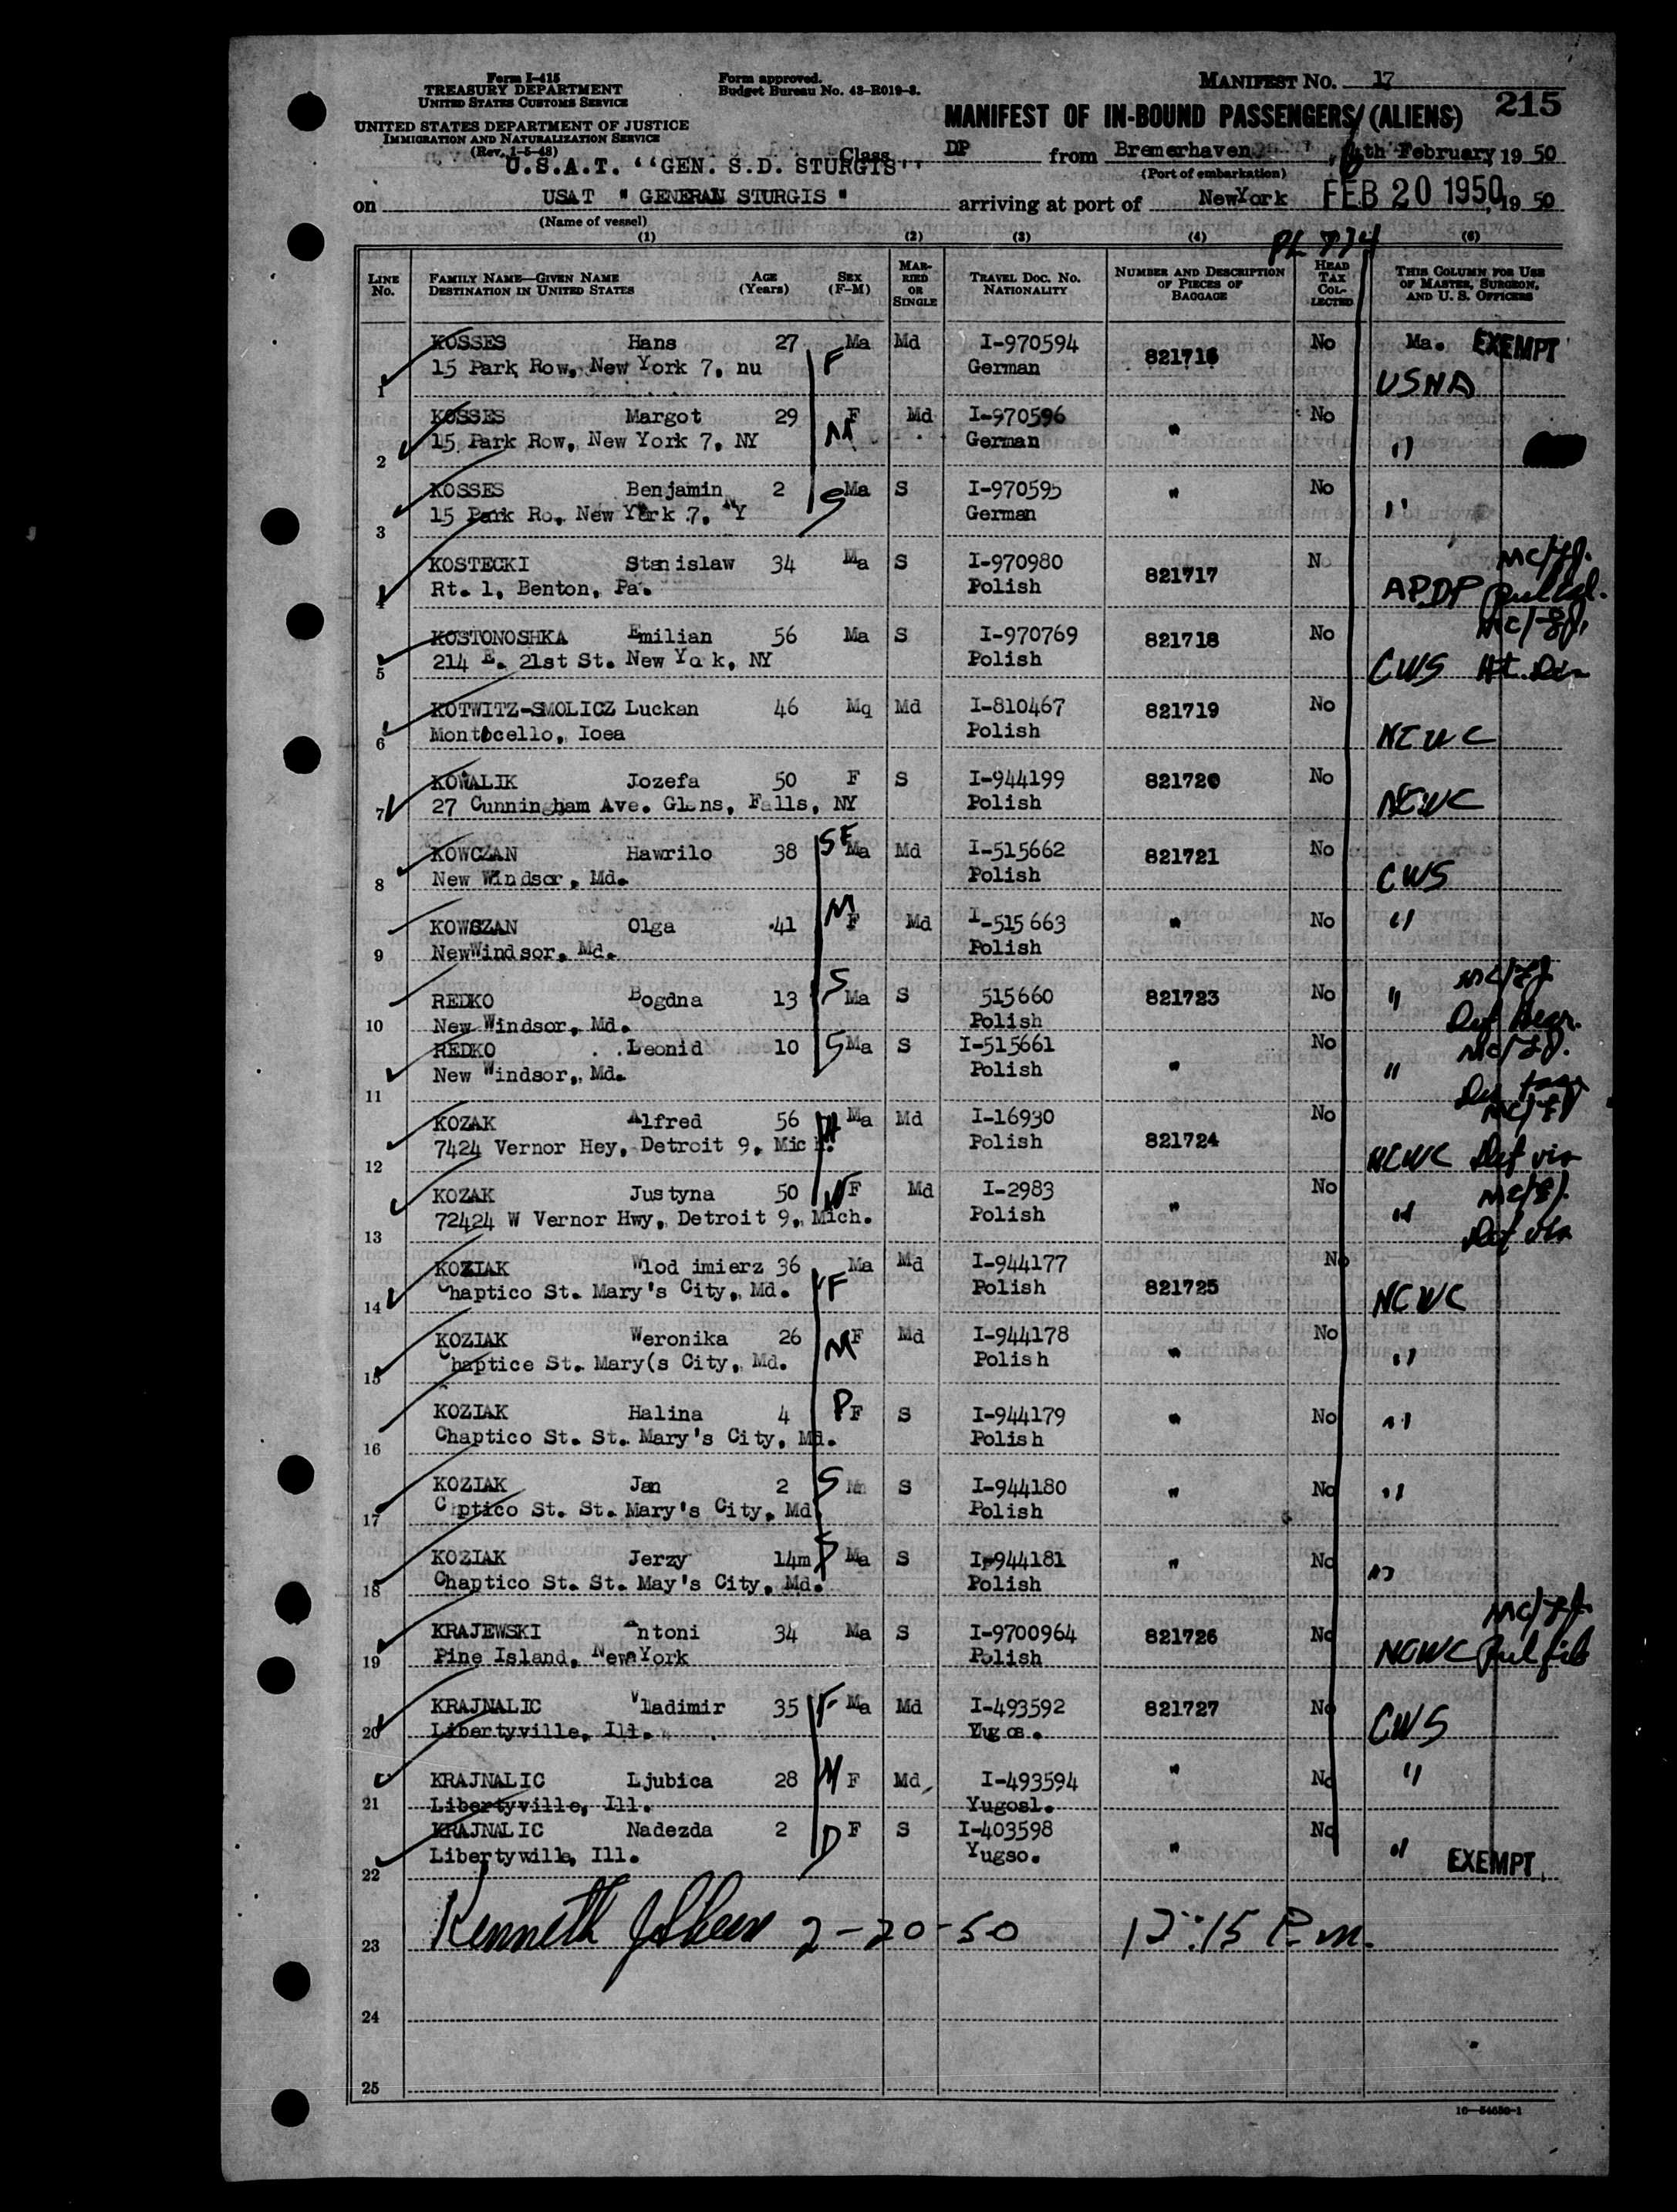 Form I-415
TREASURY DEPARTMENT
UNITED STATES CUSTOMS SERVICE
UNITED STATES DEPARTMENT OF JUSTICE
IMMIGRATION AND NATURALIZATION SERVICE
(Rev. 1-5-48)
Form approved.
Budget Bureau No. 43-R019-3.
MANIFEST NO. 17
215
MANIFEST OF IN-BOUND PASSENGERS (ALIENS)
U.S.A.T. "GEN. S.D. STURGIS"
Class DP from Bremerhaven, th February, 19 50
(Port of embarkation)
on USAT " GENERAL STURGIS " arriving at port of NewYork FEB 20 1950, 19 50
(Name of vessel)
(1) (2) (3) (4) PL 774 (6)
LINE No. FAMILY NAME—GIVEN NAME DESTINATION IN UNITED STATES AGE (Years) SEX (F-M) MARRIED OR SINGLE TRAVEL DOC. NO. NATIONALITY NUMBER AND DESCRIPTION OF PIECES OF BAGGAGE HEAD TAX COLLECTED THIS COLUMN FOR USE OF MASTER, SURGEON, AND U. S. OFFICERS
KOSSES Hans 27 Ma Md I-970594 821716 No Ma. EXEMPT
1 15 Park Row, New York 7, nu F German USNA
KOSSES Margot 29 F Md I-970596 " No
2 15 Park Row, New York 7, NY M German "
KOSSES Benjamin 2 Ma S I-970595 " No
3 15 Park Ro, New York 7, NY S German "
KOSTECKI Stanislaw 34 Ma S I-970980 821717 No
4 Rt. 1, Benton, Pa. Polish APDP
KOSTONOSHKA Emilian 56 Ma S I-970769 821718 No
5 214 E. 21st St. New Yo k, NY Polish CWS
KOTWITZ-SMOLICZ Luckan 46 Mq Md I-810467 821719 No
6 Montocello, Ioea Polish NCWC
KOWALIK Jozefa 50 F S I-944199 821720 No
7 27 Cunningham Ave. Glens, Falls, NY Polish NCWC
KOWCZAN Hawrilo 38 SF Ma Md I-515662 821721 No
8 New Windsor, Md. Polish CWS
KOWSZAN Olga 41 M F Md I-515663 " No "
9 NewWindsor, Md. Polish
REDKO Bogdna 13 S Ma S 515660 821723 No "
10 New Windsor, Md. Polish
REDKO Leonid 10 S Ma S I-515661 No
11 New Windsor, Md. Polish " "
KOZAK Alfred 56 H Ma Md I-16930 No
12 7424 Vernor Hey, Detroit 9, Mich. Polish 821724 NCWC Def vis
KOZAK Justyna 50 W F Md I-2983 No
13 72424 W Vernor Hwy, Detroit 9, Mich. Polish " " Def vis
KOZIAK Wlod imierz 36 Ma Md I-944177 No
14 Chaptico St. Mary's City, Md. F Polish 821725 NCWC
KOZIAK Weronika 26 M F Md I-944178 No
15 Chaptice St. Mary(s City, Md. Polish " "
KOZIAK Halina 4 F S I-944179 " No "
16 Chaptico St. St. Mary's City, Md. Polish
KOZIAK Jan 2 S S I-944180 " No "
17 C ptico St. St. Mary's City, Md. Polish
KOZIAK Jerzy 14m S Ma S I-944181 " No "
18 Chaptico St. St. May's City, Md. Polish
KRAJEWSKI Antoni 34 Ma S I-9700964 821726 No
19 Pine Island, New York Polish NCWC
KRAJNALIC Vladimir 35 F Ma Md I-493592 821727 No
20 Libertyville, Ill. Yugos. CWS
KRAJNALIC Ljubica 28 M F Md I-493594 " No "
21 Libertyville, Ill. Yugosl.
KRAJNALIC Nadezda 2 D F S I-403598 No
22 Libertywille, Ill. Yugso. " " EXEMPT
23 Kenneth 2-20-50 12:15 P.m.
24
25